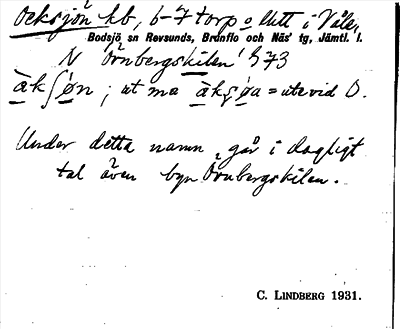 Ocksjön kb, 6-7 torp o lht i Våle,
Bodsjö sn Revsunds, Brunflo och Näs' tg, Jämtl. l.
N Örnbergskilen 573
àkʃøn ; ut ma àkʃøa = utevid O.
Under detta namn går i dagligt
tal även byn Örnbergskilen.
C. LINDBERG 1931.